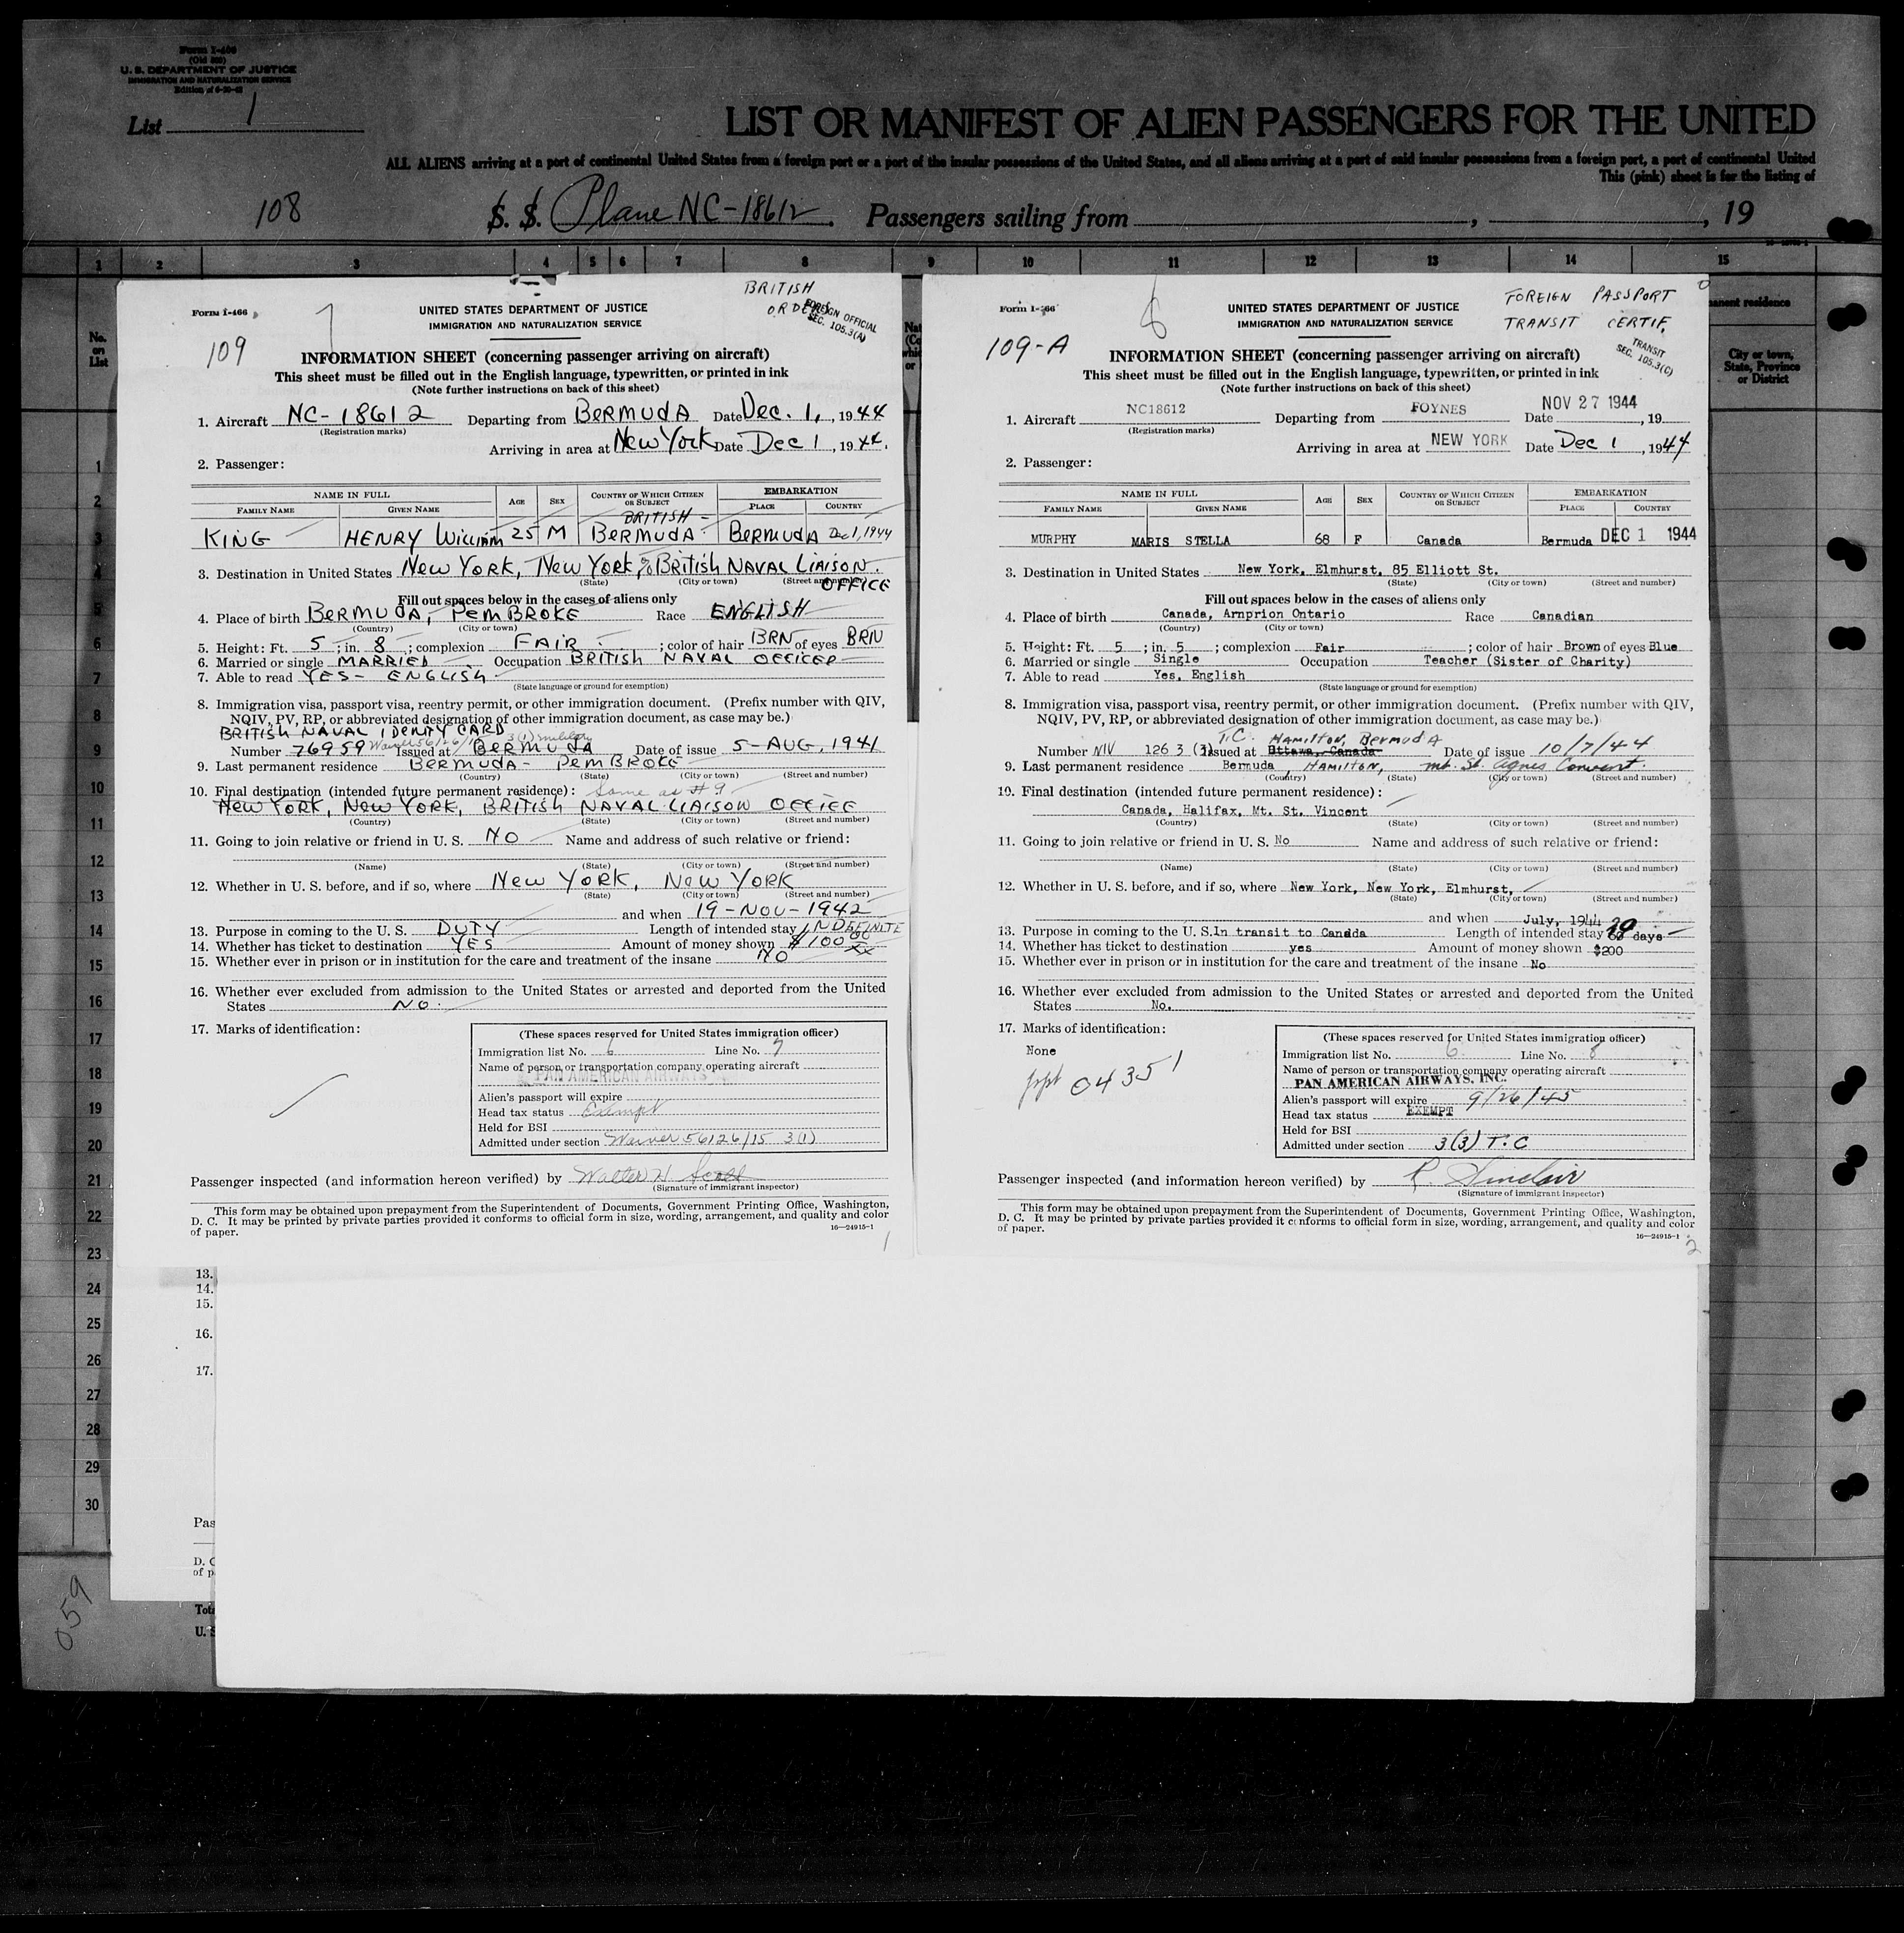 Form I-466
(Old 500)
U. S. DEPARTMENT OF JUSTICE
IMMIGRATION AND NATURALIZATION SERVICE
List 1
LIST OR MANIFEST OF ALIEN PASSENGERS FOR THE UNITED
ALL ALIENS arriving at a port of continental United States from a foreign port or a port of the insular possessions of the United States, and all aliens arriving at a port of said insular possessions from a foreign port, a port of continental United
This (pink) sheet is for the listing of
108 S. S. Plane NC-18612. Passengers sailing from , , 19
1 2 3 4 5 6 7 8 9 10 11 12 13 14 15
No. on List
permanent residence
City or town, State, Province or District
1
2
3
4
5
6
7
8
9
10
11
12
13
14
15
16
17
18
19
20
21
22
23
24
25
26
27
28
29
30
059
Form I-466
7
BRITISH
ORDERS
FOREIGN OFFICIAL
SEC. 105.3(A)
UNITED STATES DEPARTMENT OF JUSTICE
IMMIGRATION AND NATURALIZATION SERVICE
109
INFORMATION SHEET (concerning passenger arriving on aircraft)
This sheet must be filled out in the English language, typewritten, or printed in ink
(Note further instructions on back of this sheet)
1. Aircraft NC-18612 Departing from BERMUDA Date Dec. 1, , 1944
(Registration marks)
Arriving in area at New York Date Dec 1 , 1944.
2. Passenger:
NAME IN FULL AGE SEX COUNTRY OF WHICH CITIZEN OR SUBJECT EMBARKATION
FAMILY NAME GIVEN NAME PLACE COUNTRY
BRITISH -
KING HENRY William 25 M BERMUDA BERMUDA Dec 1, 1944
3. Destination in United States New York, New York, c/o British NAVAL LIAISON.
(State) (City or town) (Street and number)
OFFICE
Fill out spaces below in the cases of aliens only
4. Place of birth BERMUDA, PEMBROKE Race ENGLISH
(Country) (City or town)
5. Height: Ft. 5 ; in. 8 ; complexion FAIR ; color of hair BRN of eyes BRN
6. Married or single MARRIED Occupation BRITISH NAVAL OFFICER
7. Able to read YES- ENGLISH
(State language or ground for exemption)
8. Immigration visa, passport visa, reentry permit, or other immigration document. (Prefix number with QIV,
NQIV, PV, RP, or abbreviated designation of other immigration document, as case may be.)
BRITISH NAVAL IDENITY CARD
Number 76959 Issued at BERMUDA Date of issue 5-AUG, 1941
9. Last permanent residence BERMUDA- PEMBROKE
(Country) (State) (City or town) (Street and number)
10. Final destination (intended future permanent residence): Same as #9
New York, New York, BRITISH NAVAL LIAISON OFFICE
(Country) (State) (City or town) (Street and number)
11. Going to join relative or friend in U. S. NO Name and address of such relative or friend:
(Name) (State) (City or town) (Street and number)
12. Whether in U. S. before, and if so, where New York, New York
(State) (City or town) (Street and number)
and when 19-NOV-1942
13. Purpose in coming to the U. S. DUTY Length of intended stay INDEFINITE
14. Whether has ticket to destination YES Amount of money shown $100 00/xx
15. Whether ever in prison or in institution for the care and treatment of the insane NO
16. Whether ever excluded from admission to the United States or arrested and deported from the United
States No.
17. Marks of identification:
(These spaces reserved for United States immigration officer)
Immigration list No. 6 Line No. 7
Name of person or transportation company operating aircraft
PAN AMERICAN AIRWAYS
Alien's passport will expire
Head tax status Exempt
Held for BSI
Admitted under section Waiver 56126/15 3(1)
Passenger inspected (and information hereon verified) by Walter H. Scott
(Signature of immigrant inspector)
This form may be obtained upon prepayment from the Superintendent of Documents, Government Printing Office, Washington,
D. C. It may be printed by private parties provided it conforms to official form in size, wording, arrangement, and quality and color
of paper.
16—24915-1
1
Form I-466
8
FOREIGN PASSPORT
TRANSIT CERTIF.
TRANSIT
SEC. 105.3(C)
UNITED STATES DEPARTMENT OF JUSTICE
IMMIGRATION AND NATURALIZATION SERVICE
109-A
INFORMATION SHEET (concerning passenger arriving on aircraft)
This sheet must be filled out in the English language, typewritten, or printed in ink
(Note further instructions on back of this sheet)
1. Aircraft NC18612 Departing from FOYNES Date NOV 27 1944 , 19
(Registration marks)
Arriving in area at NEW YORK Date Dec 1 , 1944
2. Passenger:
NAME IN FULL AGE SEX COUNTRY OF WHICH CITIZEN OR SUBJECT EMBARKATION
FAMILY NAME GIVEN NAME PLACE COUNTRY
MURPHY MARIS STELLA 68 F Canada Bermuda DEC 1 1944
3. Destination in United States New York, Elmhurst, 85 Elliott St.
(State) (City or town) (Street and number)
Fill out spaces below in the cases of aliens only
4. Place of birth Canada, Arnprion Ontario Race Canadian
(Country) (City or town)
5. Height: Ft. 5 ; in. 5 ; complexion Fair ; color of hair Brown of eyes Blue
6. Married or single Single Occupation Teacher (Sister of Charity)
7. Able to read Yes, English
(State language or ground for exemption)
8. Immigration visa, passport visa, reentry permit, or other immigration document. (Prefix number with QIV,
NQIV, PV, RP, or abbreviated designation of other immigration document, as case may be.)
T.C. HAMILTON, BERMUDA
Number NIV 126 3 (3) Issued at Ottawa, Canada Date of issue 10/7/44
9. Last permanent residence Bermuda HAMILTON, Mt. St. Agnes Convent.
(Country) (State) (City or town) (Street and number)
10. Final destination (intended future permanent residence):
Canada, Halifax, Mt. St. Vincent
(Country) (State) (City or town) (Street and number)
11. Going to join relative or friend in U. S. No Name and address of such relative or friend:
(Name) (State) (City or town) (Street and number)
12. Whether in U. S. before, and if so, where New York, New York, Elmhurst,
(State) (City or town) (Street and number)
and when July, 1944
13. Purpose in coming to the U. S. In transit to Canada Length of intended stay days
14. Whether has ticket to destination yes Amount of money shown $200
15. Whether ever in prison or in institution for the care and treatment of the insane No
16. Whether ever excluded from admission to the United States or arrested and deported from the United
States No.
17. Marks of identification:
None
ppt 04351
(These spaces reserved for United States immigration officer)
Immigration list No. 6 Line No. 8
Name of person or transportation company operating aircraft
PAN AMERICAN AIRWAYS, INC.
Alien's passport will expire 9/26/45
Head tax status EXEMPT
Held for BSI
Admitted under section 3(3) T.C
Passenger inspected (and information hereon verified) by R. Sinclair
(Signature of immigrant inspector)
This form may be obtained upon prepayment from the Superintendent of Documents, Government Printing Office, Washington,
D. C. It may be printed by private parties provided it conforms to official form in size, wording, arrangement, and quality and color
of paper.
16—24915-1
2
13.
14.
15.
16.
17.
Pas
D. C
of p
Tota
U. S